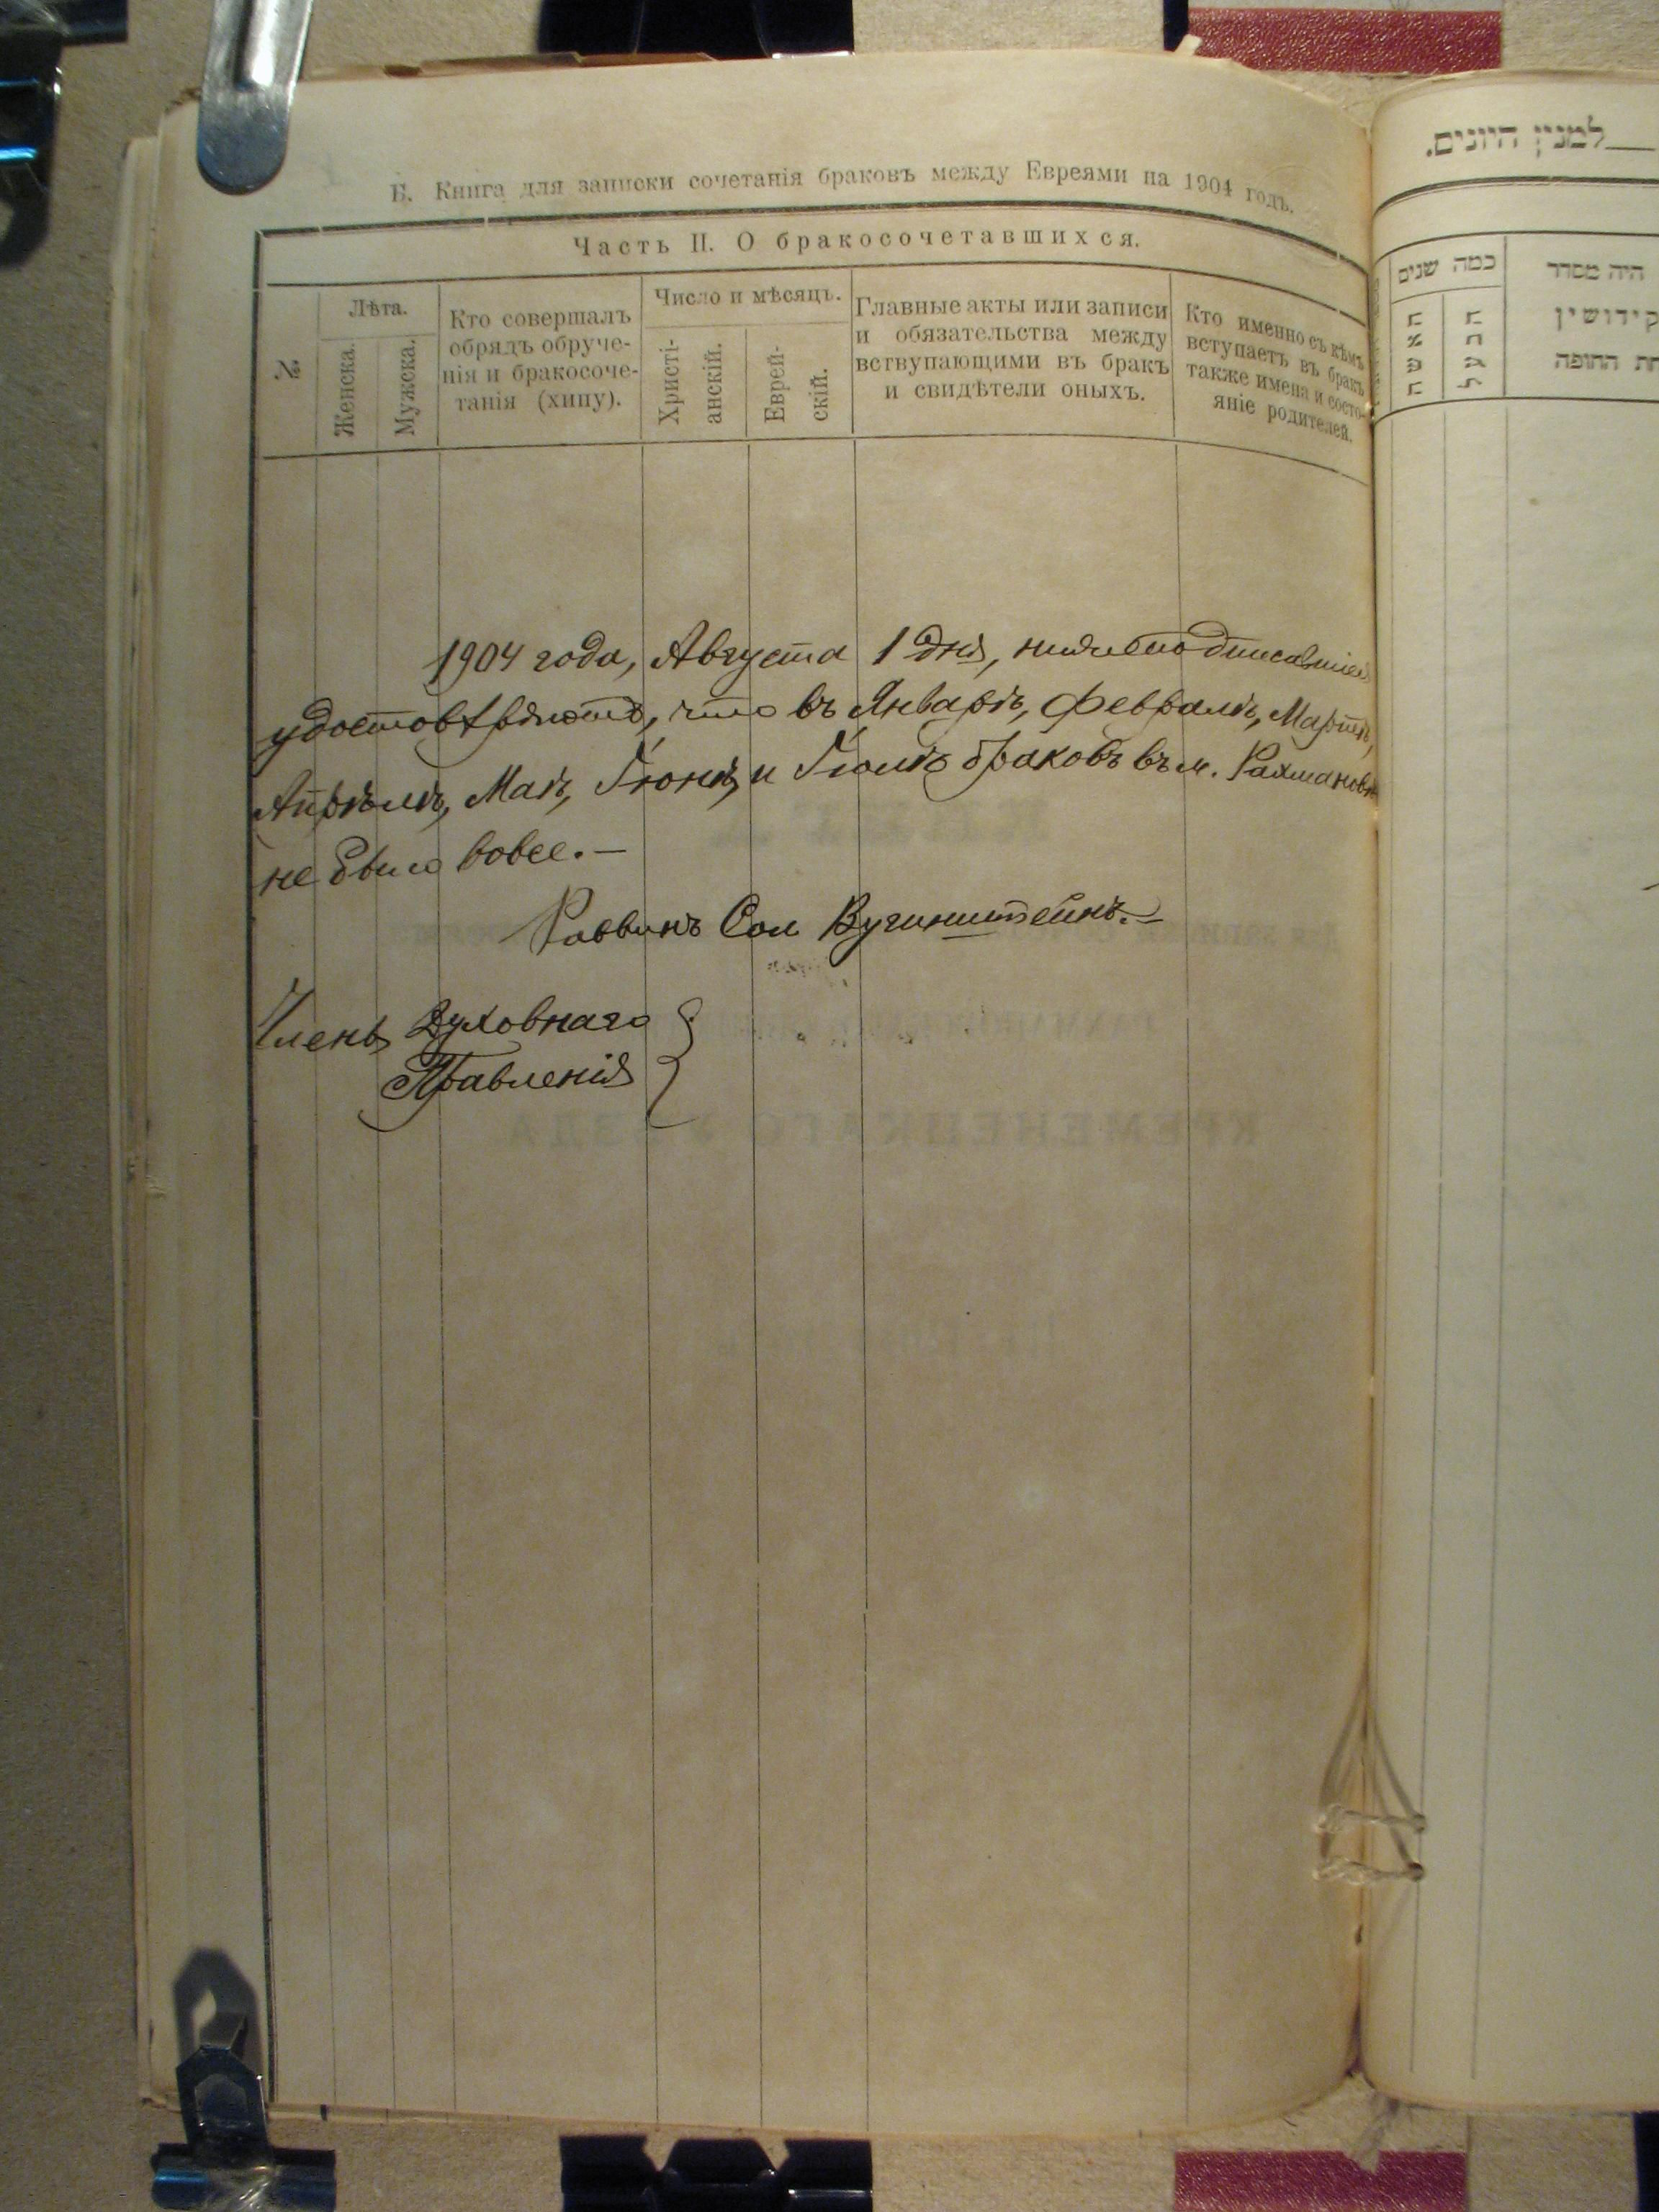 Б. Книга для записки сочетанія браковъ между Евреями на 1904 годъ.
Часть II. О бракосочетавшихся.
№
Лѣта.
Женска.
Мужска.
Кто совершалъ
обрядъ обруче-
нія и бракосоче-
танія (хипу).
Число и мѣсяцъ.
Христі-
анскій.
Еврей-
скій.
Главные акты или записи
и обязательства между
вствупающими въ бракъ
и свидѣтели оныхъ.
Кто именно съ кѣмъ
вступаетъ въ бракъ
также имена и состо-
яніе родителей.
1904 года, Августа 1 дня, нижеподписавшіеся
удостовѣряютъ, что въ Январѣ, Февралѣ, Мартѣ,
Апрѣлѣ, Маѣ, Іюнѣ, и Іюлѣ браковъ въ м. Рахмановѣ
не было вовсе.—
Раввинъ Сол
Члены Духовнаго
Правленія
למנין היונים.
כמה שנים
האשה
הבעל
היה מסדר
קידושין
תחת החופה
КРЕМЕНЕЦКАГО УѢЗДА